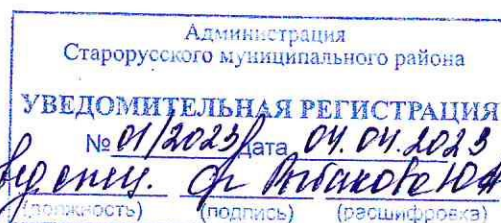 Администрация
Старорусского муниципального района
УВЕДОМИТЕЛЬНАЯ РЕГИСТРАЦИЯ
№ 01/2023 дата 04.04.2023
(должность) (подпись) (расшифровка)